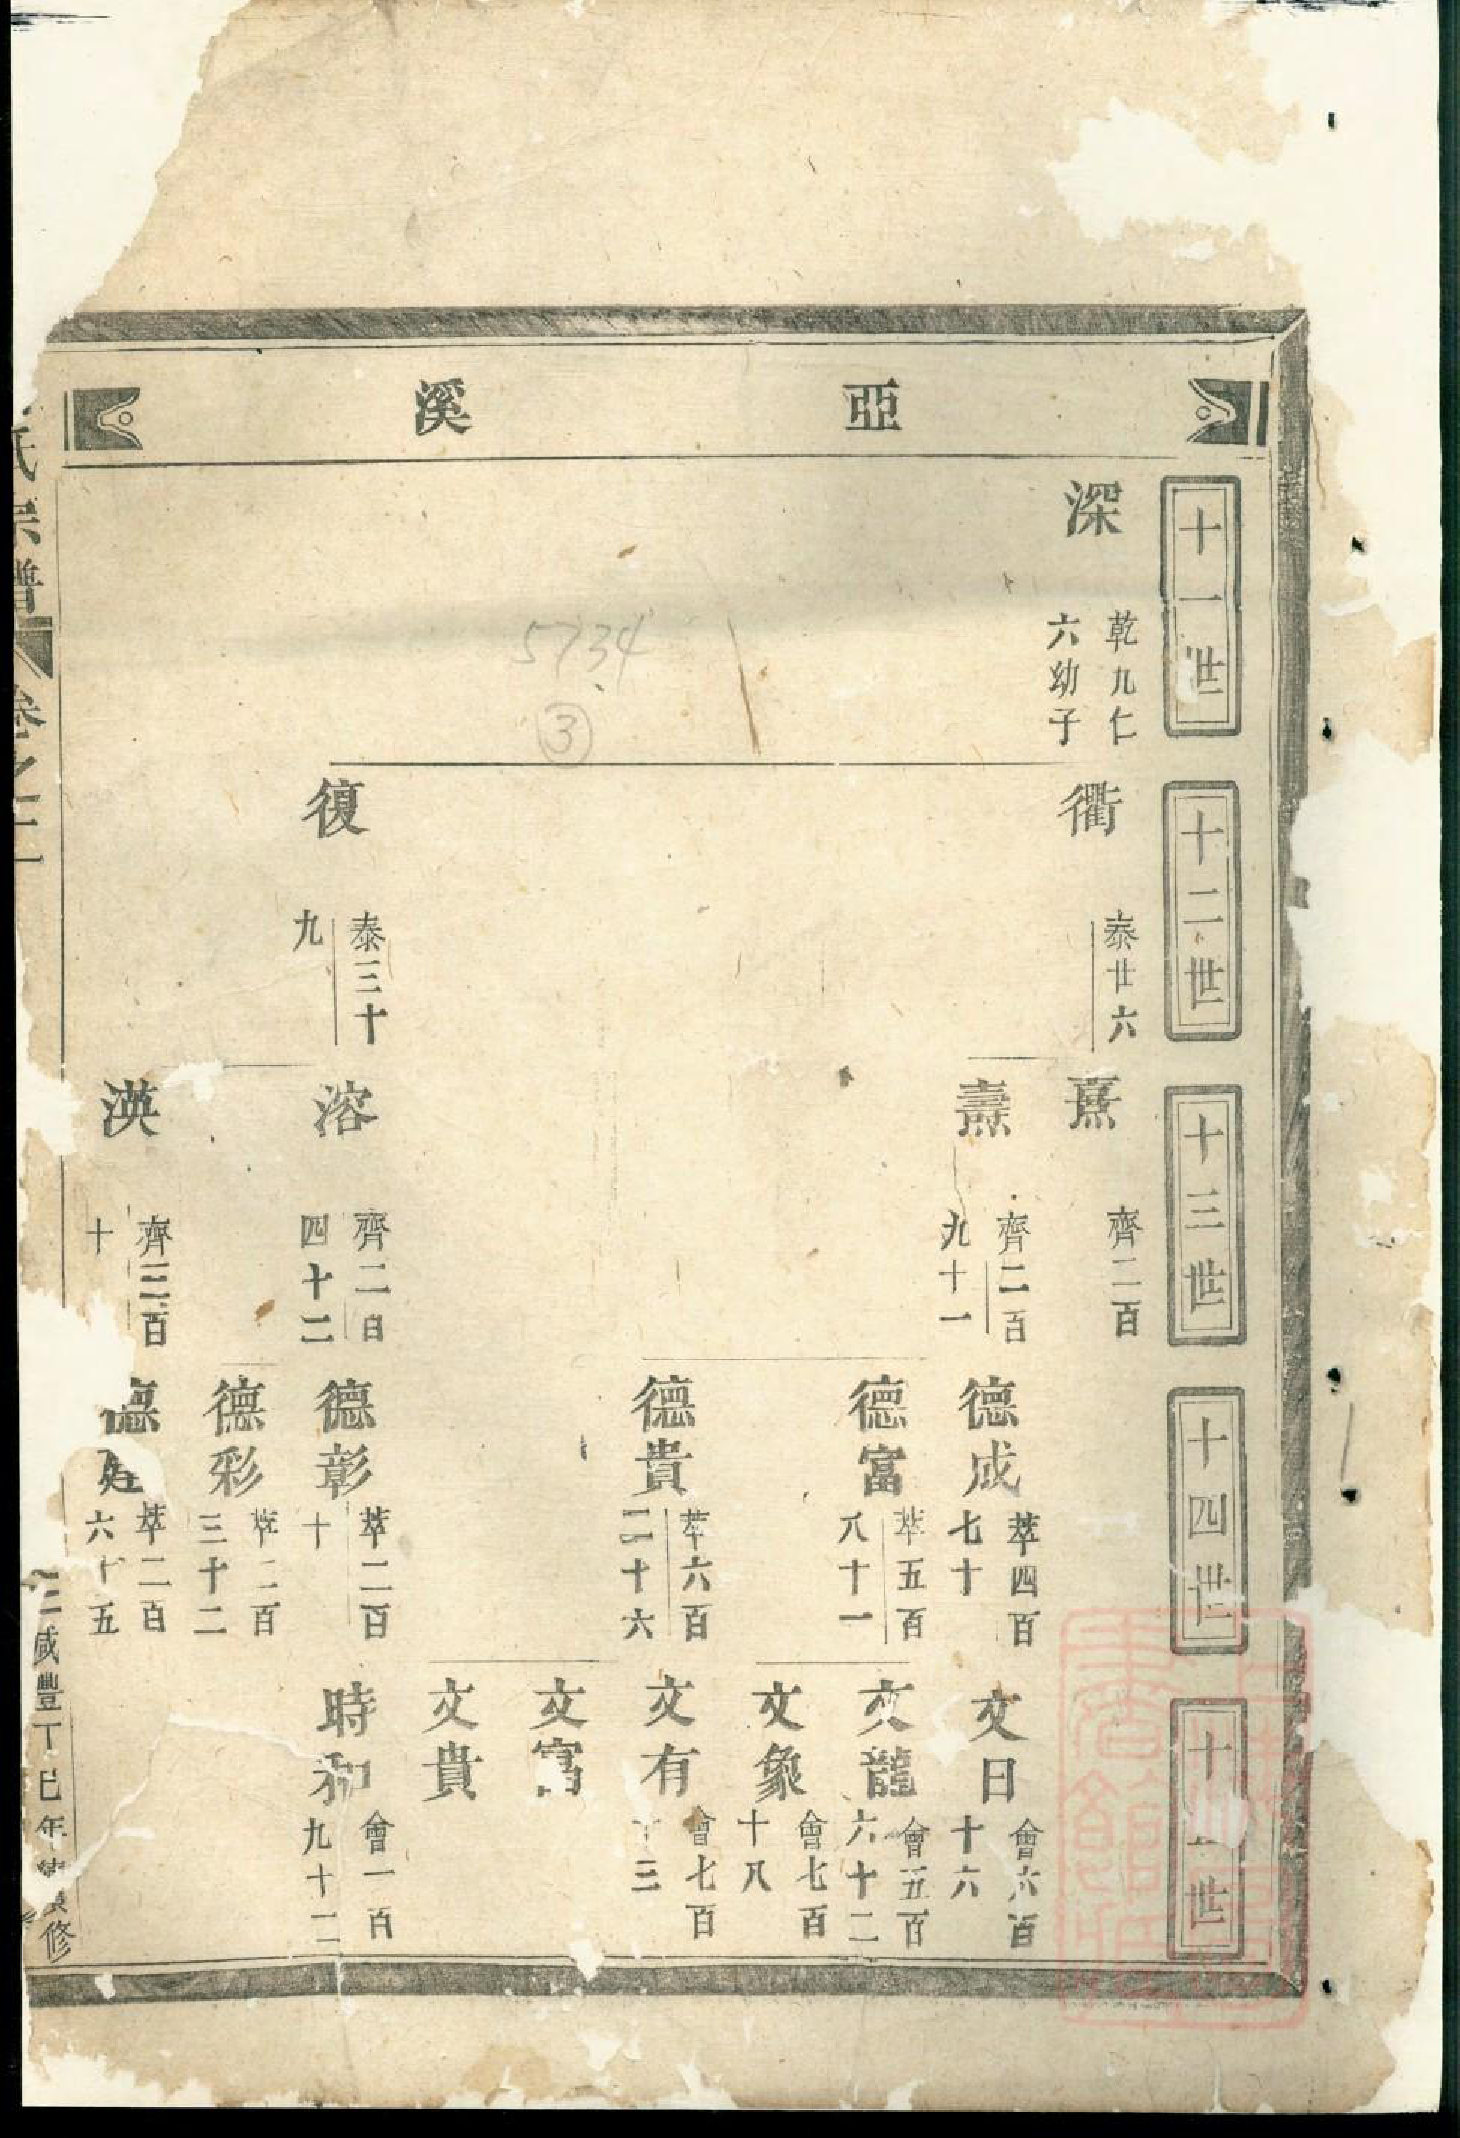 亞溪
十一世
深
乾九仁
六幼子
十二世
衢
泰廿六
復
泰三十
九
十三世
熹
齊二百
燾
齊二百
九十一
溶
齊二百
四十二
漢
齊三百
十
十四世
德成
萃四百
七十
德富
萃五百
八十一
德貴
萃六百
二十六
德彰
萃二百
十
德彩
萃二百
三十二
德
萃二百
六十五
十 世
文日
會六百
十六
文龍
會五百
六十二
文象
會七百
十八
文有
會七百
十三
文富
文貴
時和
會一百
九十二
氏宗譜
卷之二
二
咸豐丁巳年 修
5734
③